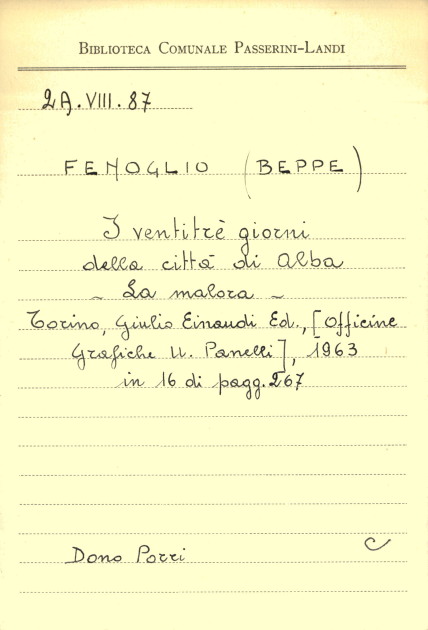 BIBLIOTECA COMUNALE PASSERINI-LANDI
2A.VIII.87
FENOGLIO (BEPPE)
I ventitrè giorni
della città di Alba
~ La malora ~
Torino, Giulio Einaudi Ed., [Officine
Grafiche U. Panelli], 1963
in 16 di pagg. 267
Dono Porri
C